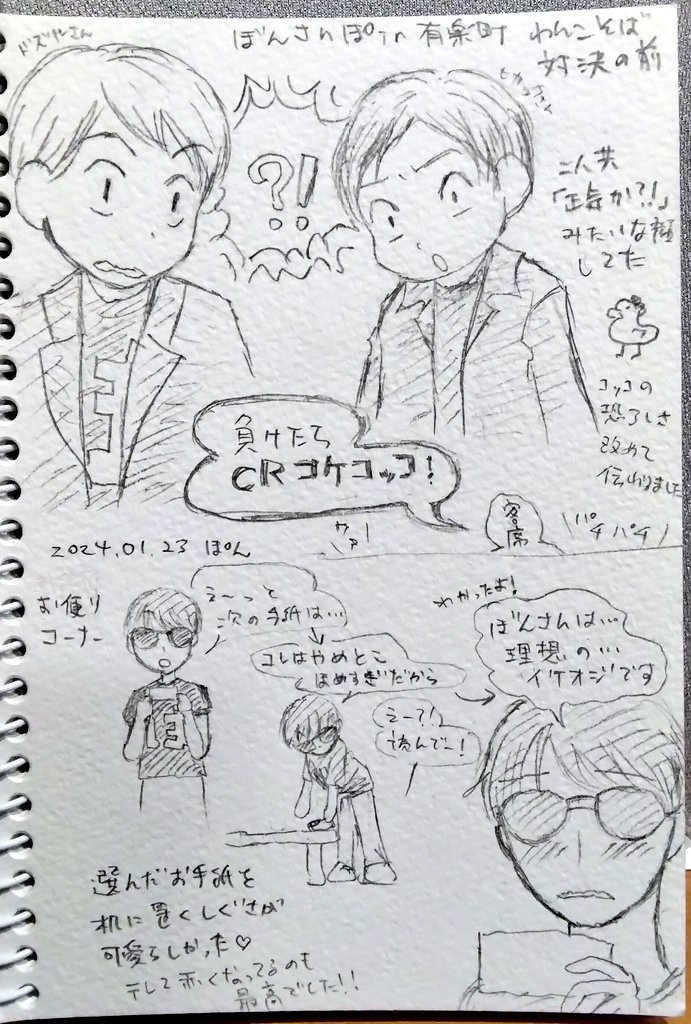 ドズルさん
ぼんさんぽ in 有楽町 わんこそば
対決の前
おおはらMENさん
?!
二人共
「正気か?!」
みたいな顔
してた
コッコの
恐ろしさ
改めて
伝わりました
E
負けたら
CRコケコッコ!
ワァー
客席
パチパチ
2024.01.23 ぼん
お便り
コーナー
え〜っと
次の手紙は…
コレはやめとこ
ほめすぎだから
えーて!
読んでー!
わかったよ!
ぼんさんは…
理想の…
イケオジです
E
選んだお手紙を
机に置くしぐさが
可愛らしかった♡
テレて赤くなってるのも
最高でした!!